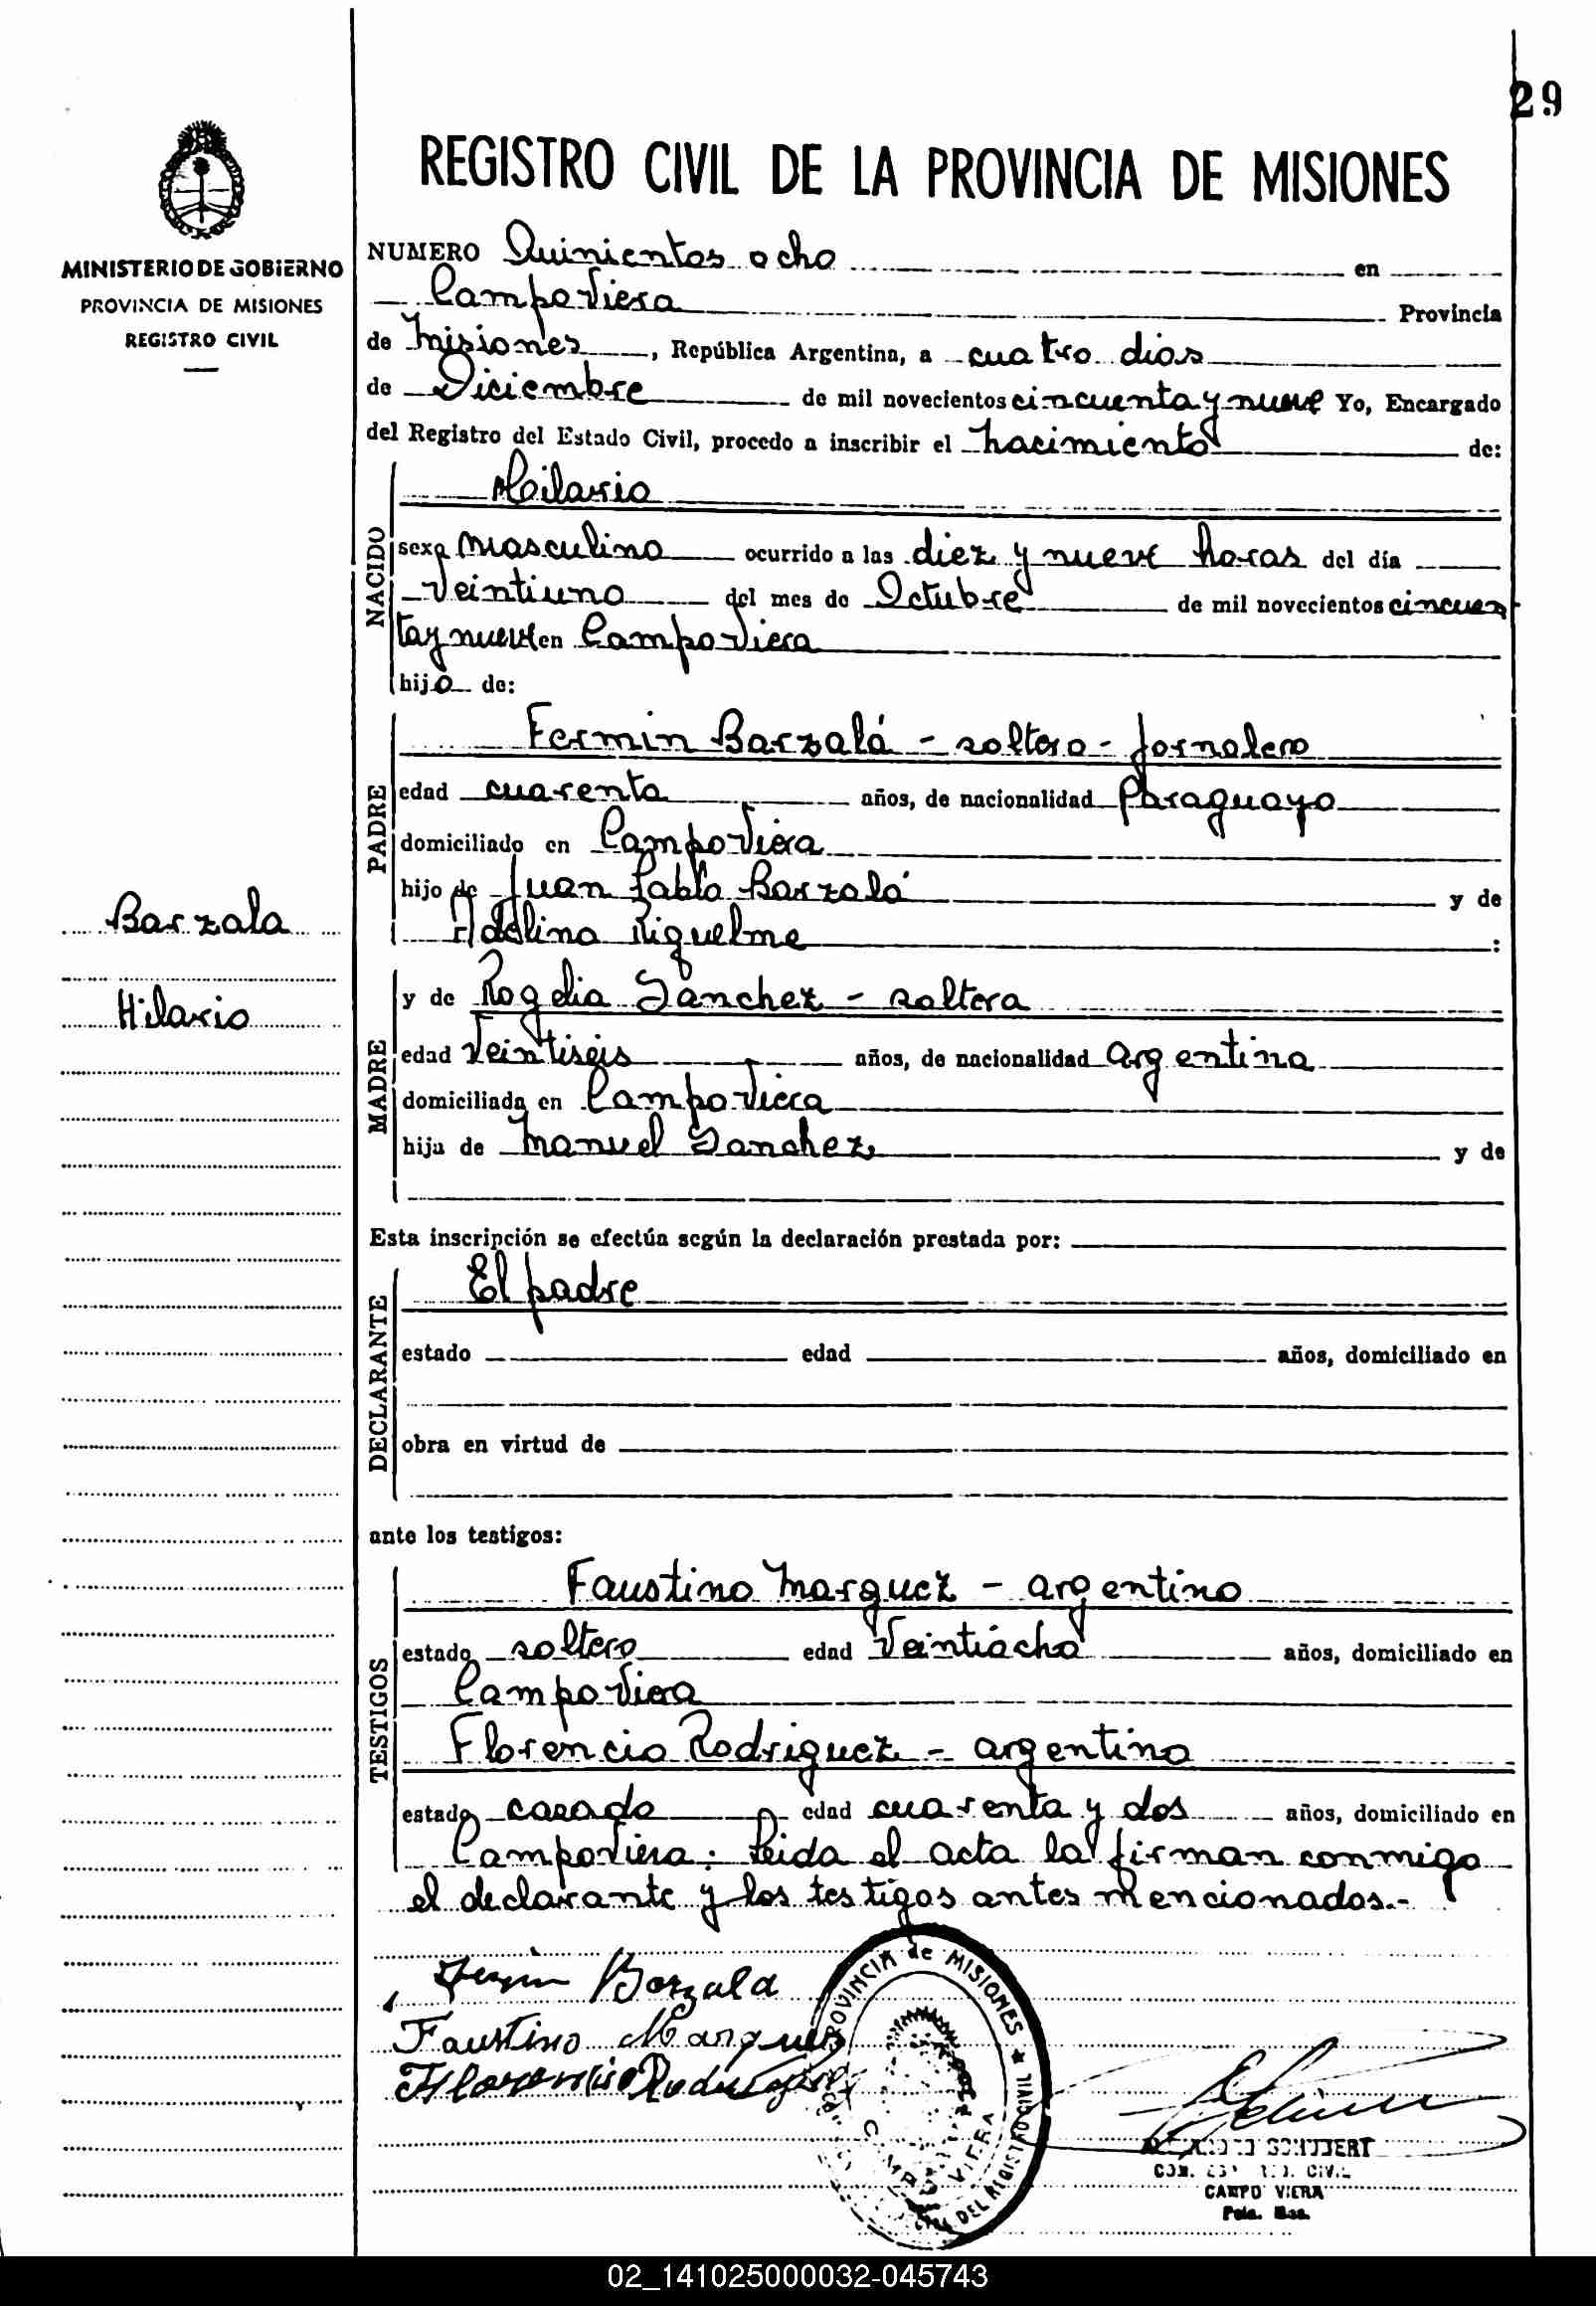 29
REGISTRO CIVIL DE LA PROVINCIA DE MISIONES
MINISTERIO DE GOBIERNO
PROVINCIA DE MISIONES
REGISTRO CIVIL
NUMERO Quinientos ocho en
Campo Viera Provincia
de Misiones, República Argentina, a cuatro dias
de Diciembre de mil novecientos cincuenta y nueve Yo, Encargado
del Registro del Estado Civil, procedo a inscribir el nacimiento de:
NACIDO
Hilario
sexo Masculino ocurrido a las diez y nueve horas del día
Veintiuno del mes de Octubre de mil novecientos cincuen
ta y nueve en Campo Viera
hijo de:
PADRE
Fermin Barzalá - soltero - Jornalero
edad cuarenta años, de nacionalidad Paraguayo
domiciliado en Campo Viera
hijo de Juan Pablo Barzalá y de
Adelina Riquelme :
Barzala
Hilario
MADRE
y de Rogelia Sanchez - soltera
edad Veintiseis años, de nacionalidad argentina
domiciliada en Campo Viera
hija de Manuel Sanchez y de
Esta inscripción se efectúa según la declaración prestada por:
DECLARANTE
El padre
estado edad años, domiciliado en
obra en virtud de
ante los testigos:
TESTIGOS
Faustino Marquez - argentino
estado soltero edad Veintiocho años, domiciliado en
Campo Viera
Florencio Rodriguez - argentino
estado casado edad cuarenta y dos años, domiciliado en
Campo Viera: Leida el acta la firman conmigo
el declarante y los testigos antes mencionados.-
Fermin Barzala
Faustino Marquez
Florencio Rodriguez
PROVINCIA de MISIONES
DEL REGISTRO CIVIL
CAMPO VIERA
SCHUBERT
CIVIL
CAMPO VIERA
Pcia. Mns.
02_141025000032-045743